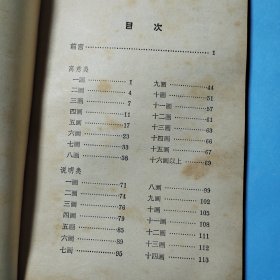 目 次
前言 1
寓意类
一画 1
二画 4
三画 7
四画 11
五画 17
六画 23
七画 33
八画 38
九画 44
十画 51
十一画 57
十二画 61
十三画 64
十四画 66
十五画 67
十六画以上 69
说明类
一画 71
二画 74
三画 76
四画 79
五画 85
六画 89
七画 95
八画 99
九画 102
十画 105
十一画 108
十二画 111
十三画 112
十四画 113